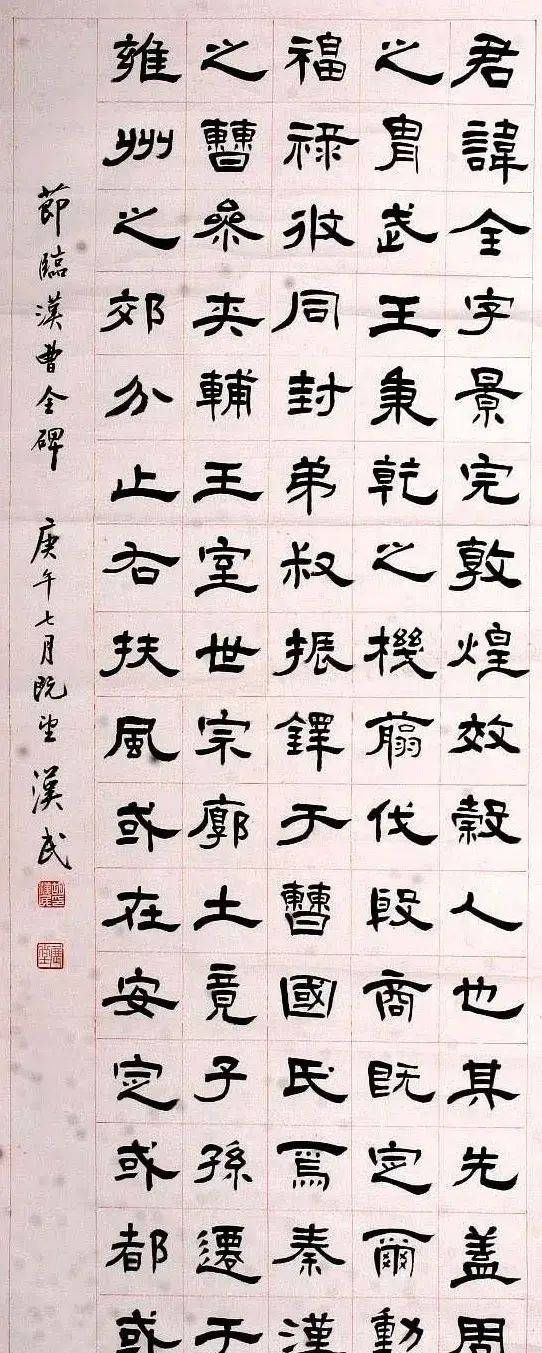 君諱全字景完敦煌效穀人也其先蓋周
之胄武王秉乾之機翦伐殷商既定爾勳
福祿攸同封弟叔振鐸于曹國氏焉秦漢
之曹參夾輔王室世宗廓土竟子孫遷于
雍州之郊分止右扶風或在安定或都或
節臨漢曹全碑 庚午七月既望 漢民